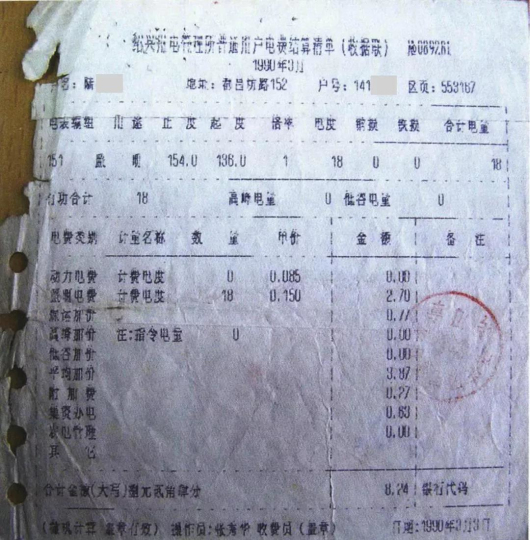 绍兴供电管理所普通用户电费结算清单(收据联) №089281
1990年3月
户名:陈 地址:都昌坊路152 户号:141 区页:553167
电表编组 用途 止度 起度 倍率 电度 铜损 铁损 合计电量
151 照明 154.0 136.0 1 18 0 0 18
有功合计 18 高峰电量 0 低谷电量 0
电费类别 计量名称 数量 单价 金额 备注
动力电费 计费电度 0 0.085 0.00
照明电费 计费电度 18 0.150 2.70
加价 0.77
高峰加价 注:指令电量 0 0.00
低谷加价 0.00
平均加价 3.87
附加费 0.27
集资办电 0.63
农电管理 0.00
其它
合计金额(大写)捌元贰角肆分 8.24 银行代码
(随机计算 盖章有效) 操作员:张 收费员(盖章) 日期:1990年3月3日